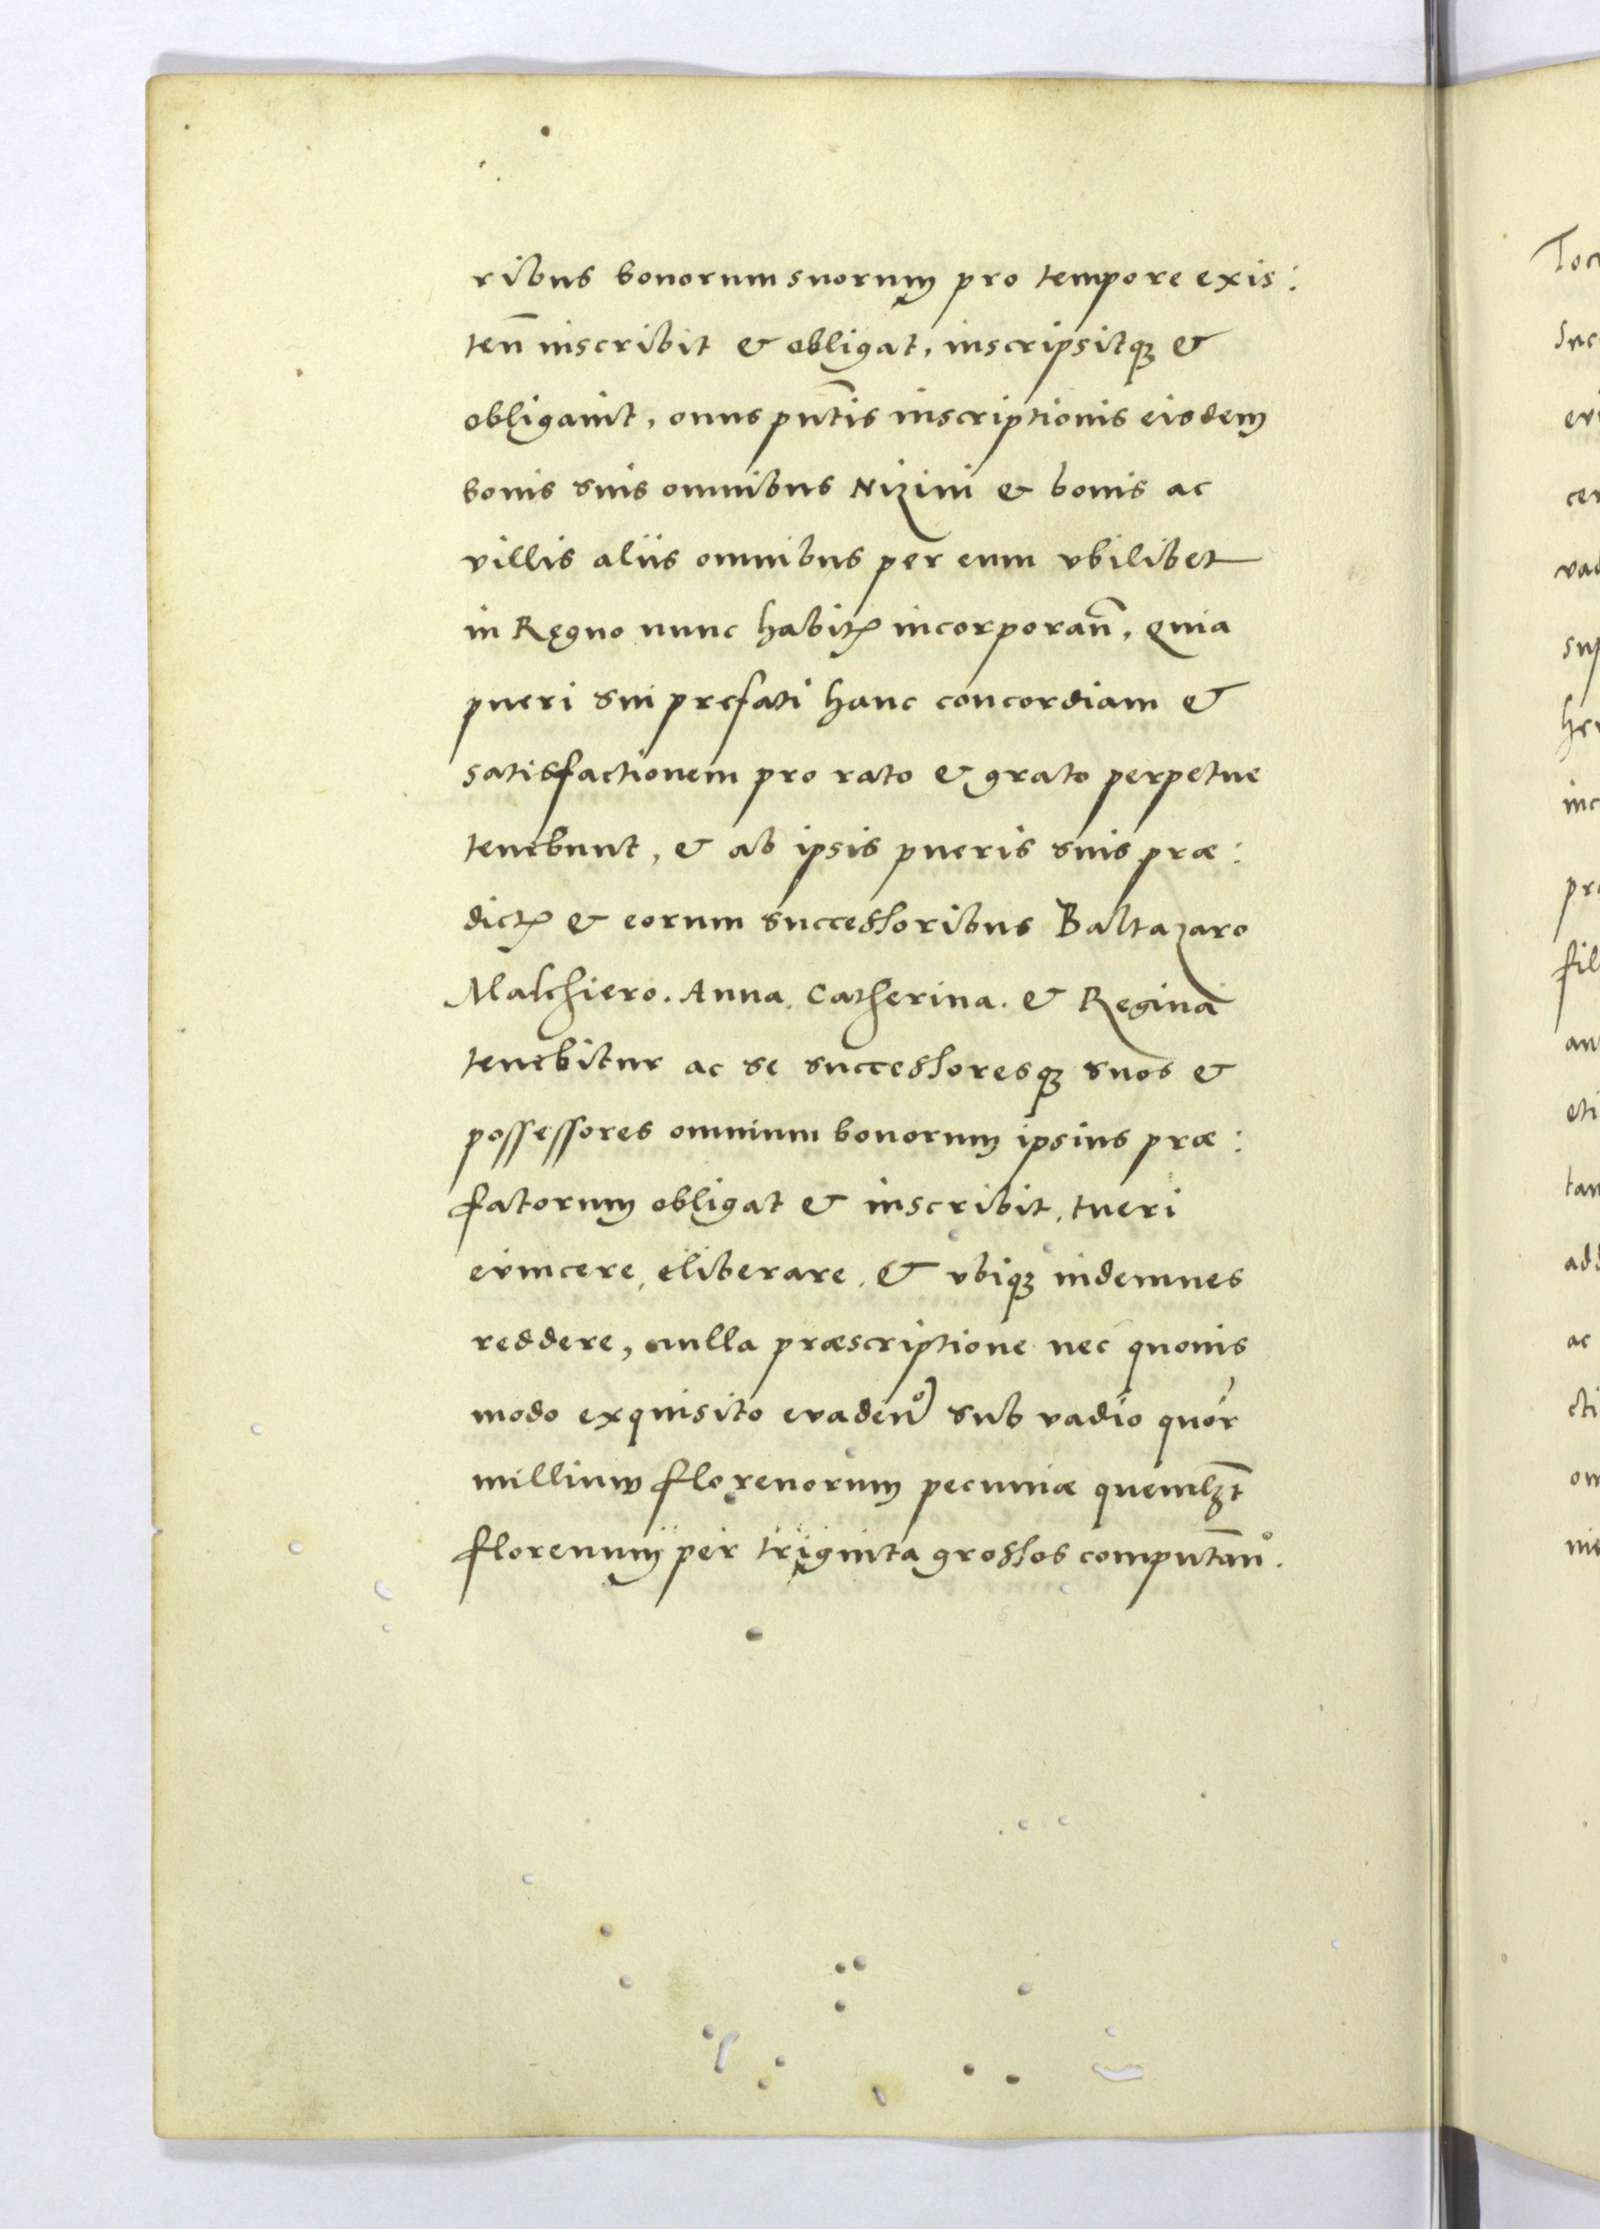 ribus bonorum suorum pro tempore exis:
ten̄ inscribit & obligat, inscripsitqꝫ &
obligauit, onus pn̄tis inscriptionis eisdem
bonis suis omnibus Nizini & bonis ac
villis aliis omnibus per eum vbilibet
in Regno nunc habitꝭ incorporan̄, quia
pueri sui prefati hanc concordiam &
satisfactionem pro rato & grato perpetue
tenebunt, & ab ipsis pueris suis præ:
dictꝭ & eorum successoribus Baltazaro
Malchiero. Anna. Catherina. & Regina
tenebitur ac se successoresqꝫ suos &
possessores omnium bonorum ipsius præ:
fatorum obligat & inscribit, tueri
euincere, eliberare, & vbiqꝫ indemnes
reddere, nulla præscriptione nec quouis
modo exquisito euaden̊ sub vadio quor̄
millium florenorum pecuniæ quemlꝫt
florenum per triginta grossos computan̊.
Toc
suc
eui
cer
vad
sup
her
inc
pro
fil
an
eti
tan
add
ac
cti
om